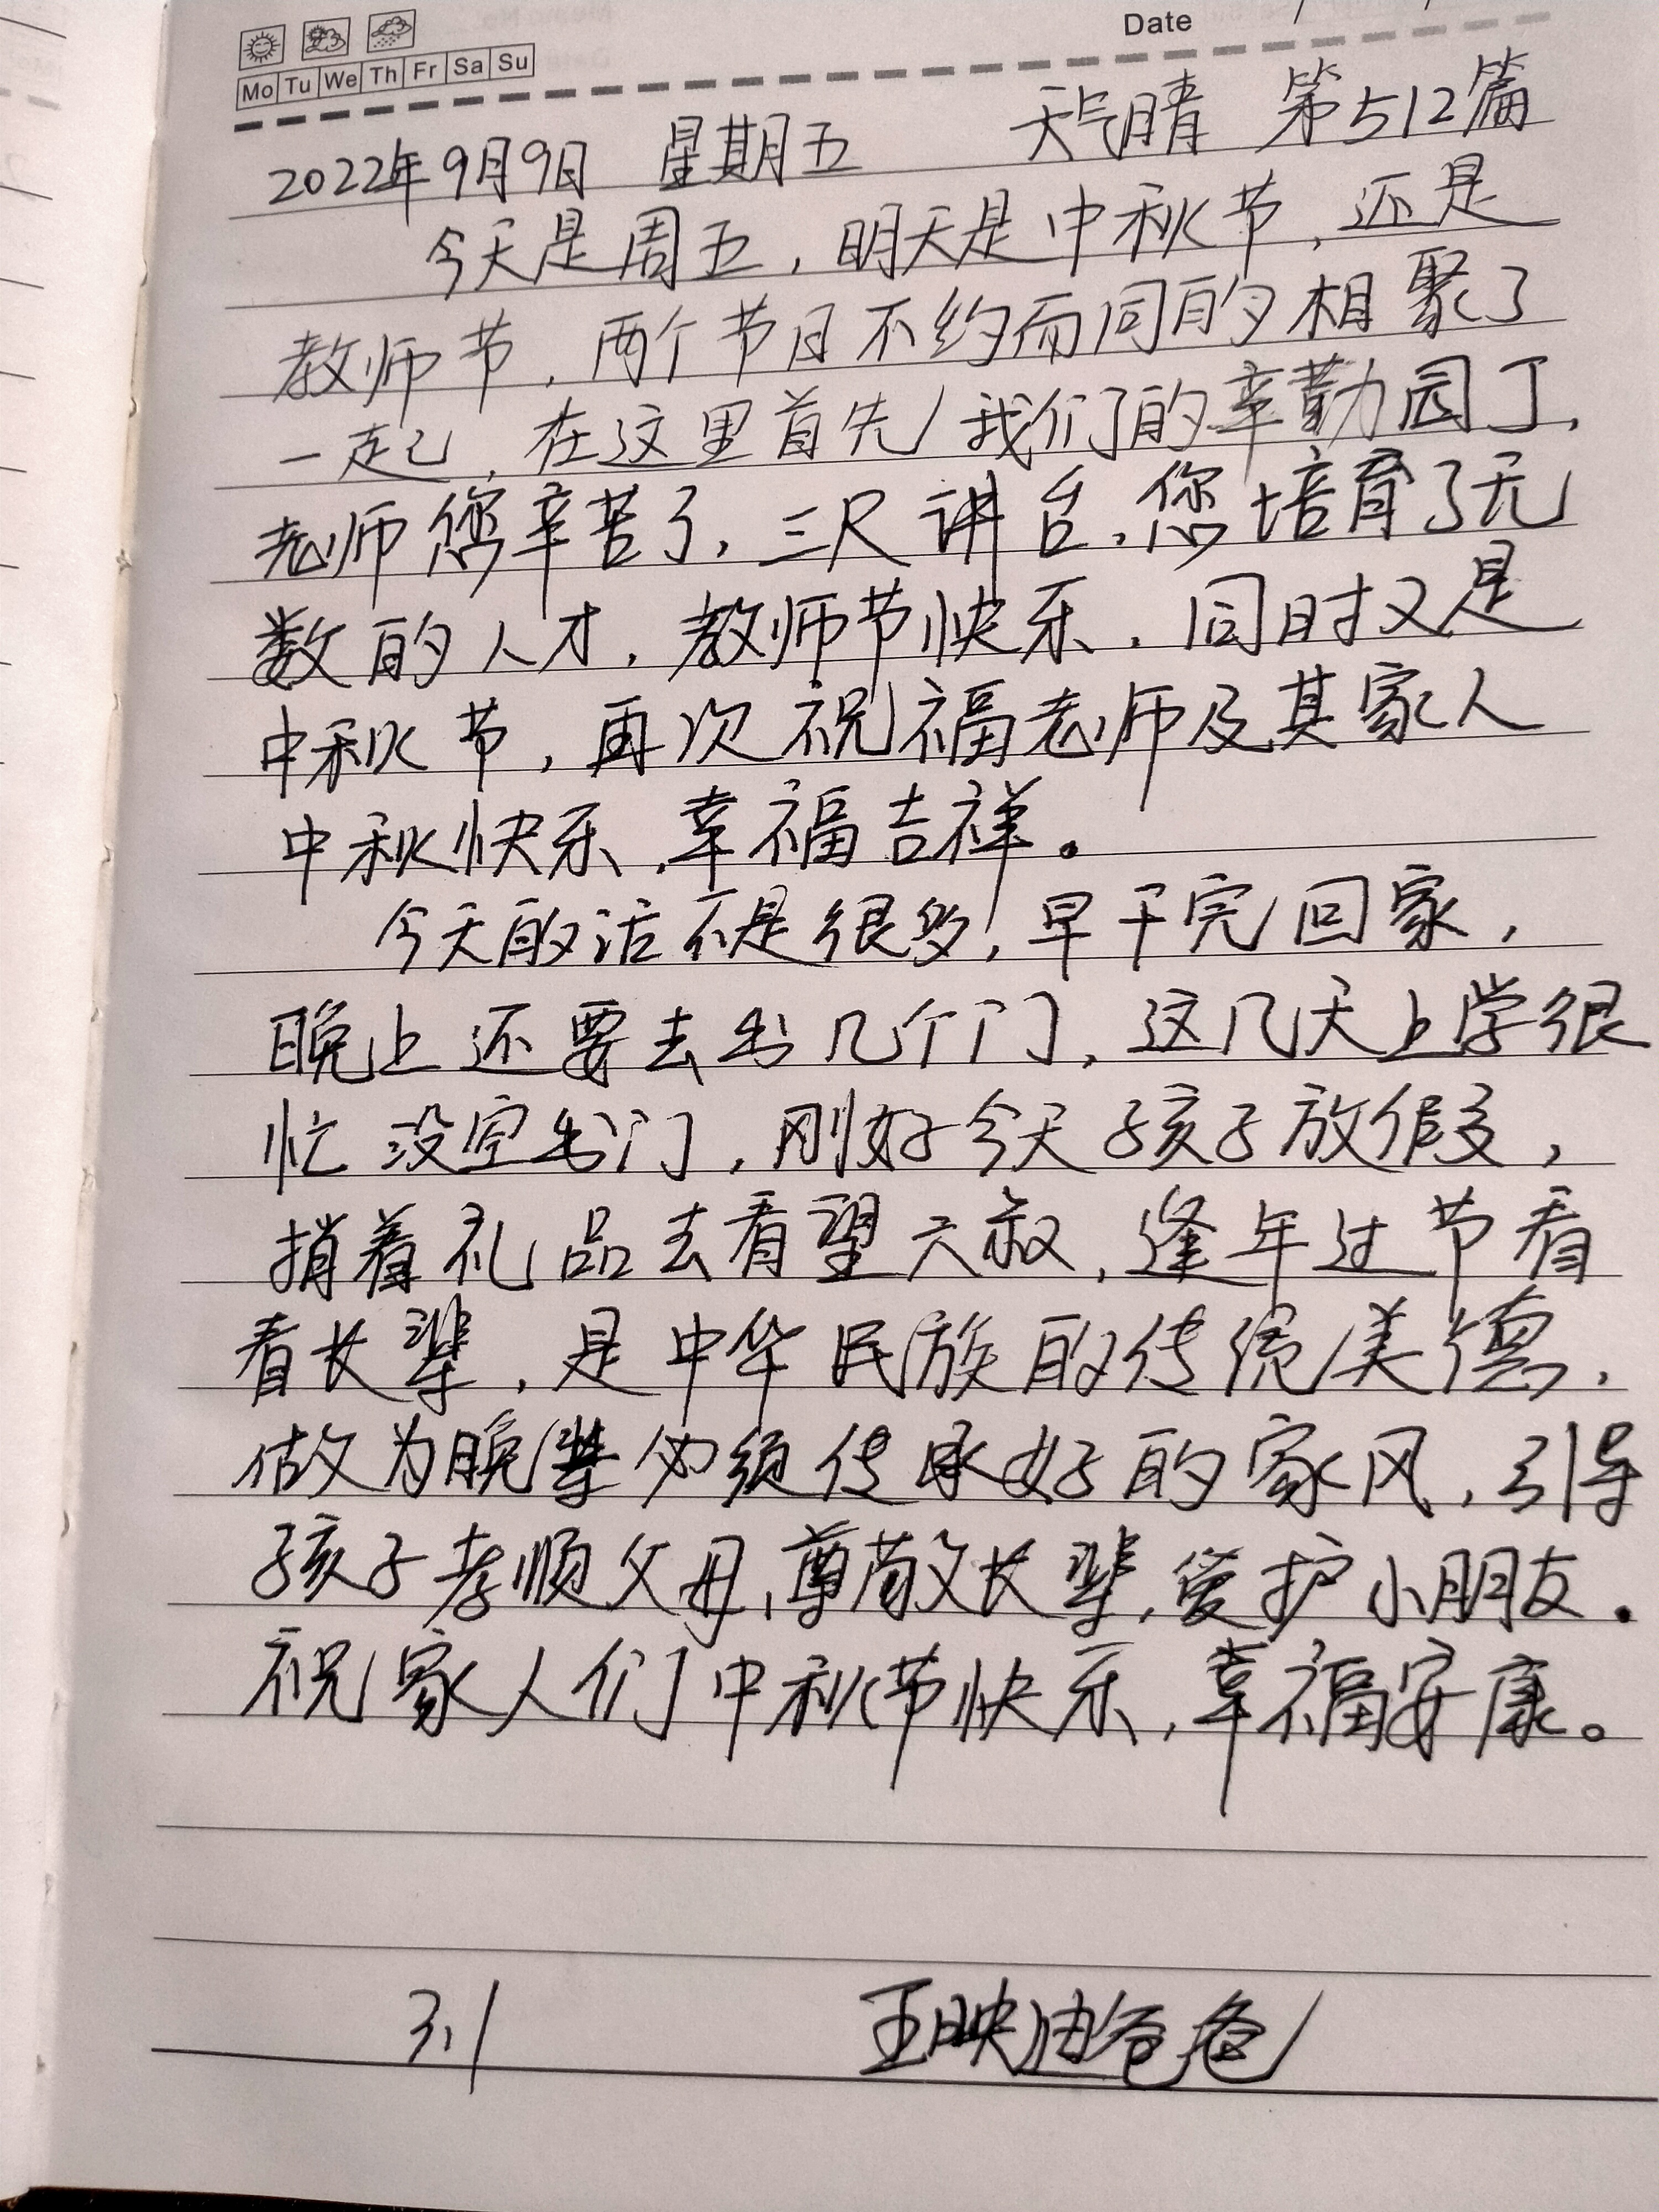 Date
Mo Tu We Th Fr Sa Su
2022年9月9日 星期五 天气晴 第512篇
今天是周五，明天是中秋节，还是
教师节，两个节日不约而同的相聚了
一起，在这里首先我们的辛勤园丁，
老师您辛苦了，三尺讲台，您培育了无
数的人才，教师节快乐，同时又是
中秋节，再次祝福老师及其家人
中秋快乐，幸福吉祥。
今天的活不是很多，早干完回家，
晚上还要去出几个门，这几天上学很
忙没空出门，刚好今天孩子放假，
捎着礼品去看望六叔，逢年过节看
看长辈，是中华民族的传统美德，
做为晚辈必须传承好的家风，引导
孩子孝顺父母，尊敬长辈，爱护小朋友。
祝家人们中秋节快乐，幸福安康。
3.1 王映 爸爸